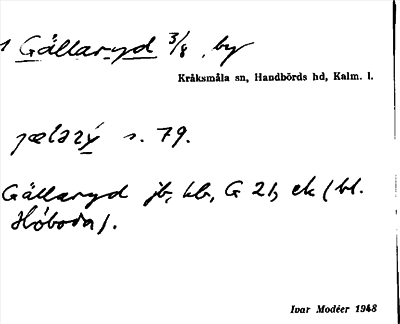 1 Gällaryd 3/8, by
Kråksmåla sn, Handbörds hd, Kalm. l.
jælarý s. 79.
Gällaryd jb, kb, G 21, ek (bl.
Hóboda).
Ivar Modéer 1948